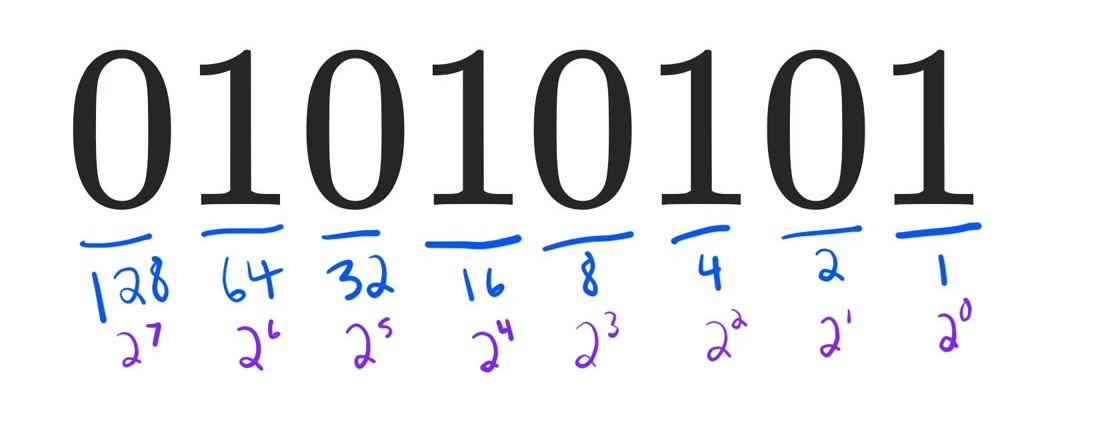 01010101
128 64 32 16 8 4 2 1
2⁷ 2⁶ 2⁵ 2⁴ 2³ 2² 2¹ 2⁰